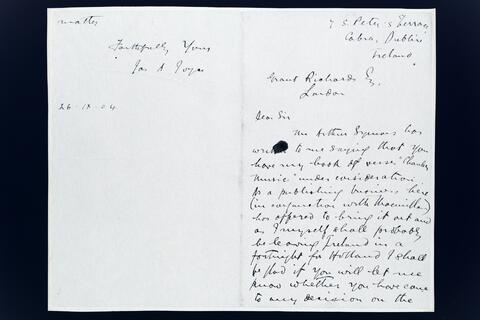 7 S. Peter's Terrace
Cabra, Dublin
Ireland
Grant Richards Esq.
London
Dear Sir
Mr Arthur Symons has
written to me saying that you
have my book of verse "Chamber
Music" under consideration.
As a publishing business here
(in conjunction with Macmillan)
has offered to bring it out and
as I myself shall probably
be leaving Ireland in a
fortnight for Holland I shall
be glad if you will let me
know whether you have come
to any decision on the
matter
Faithfully Yours
Jas A Joyce
26.IX.04